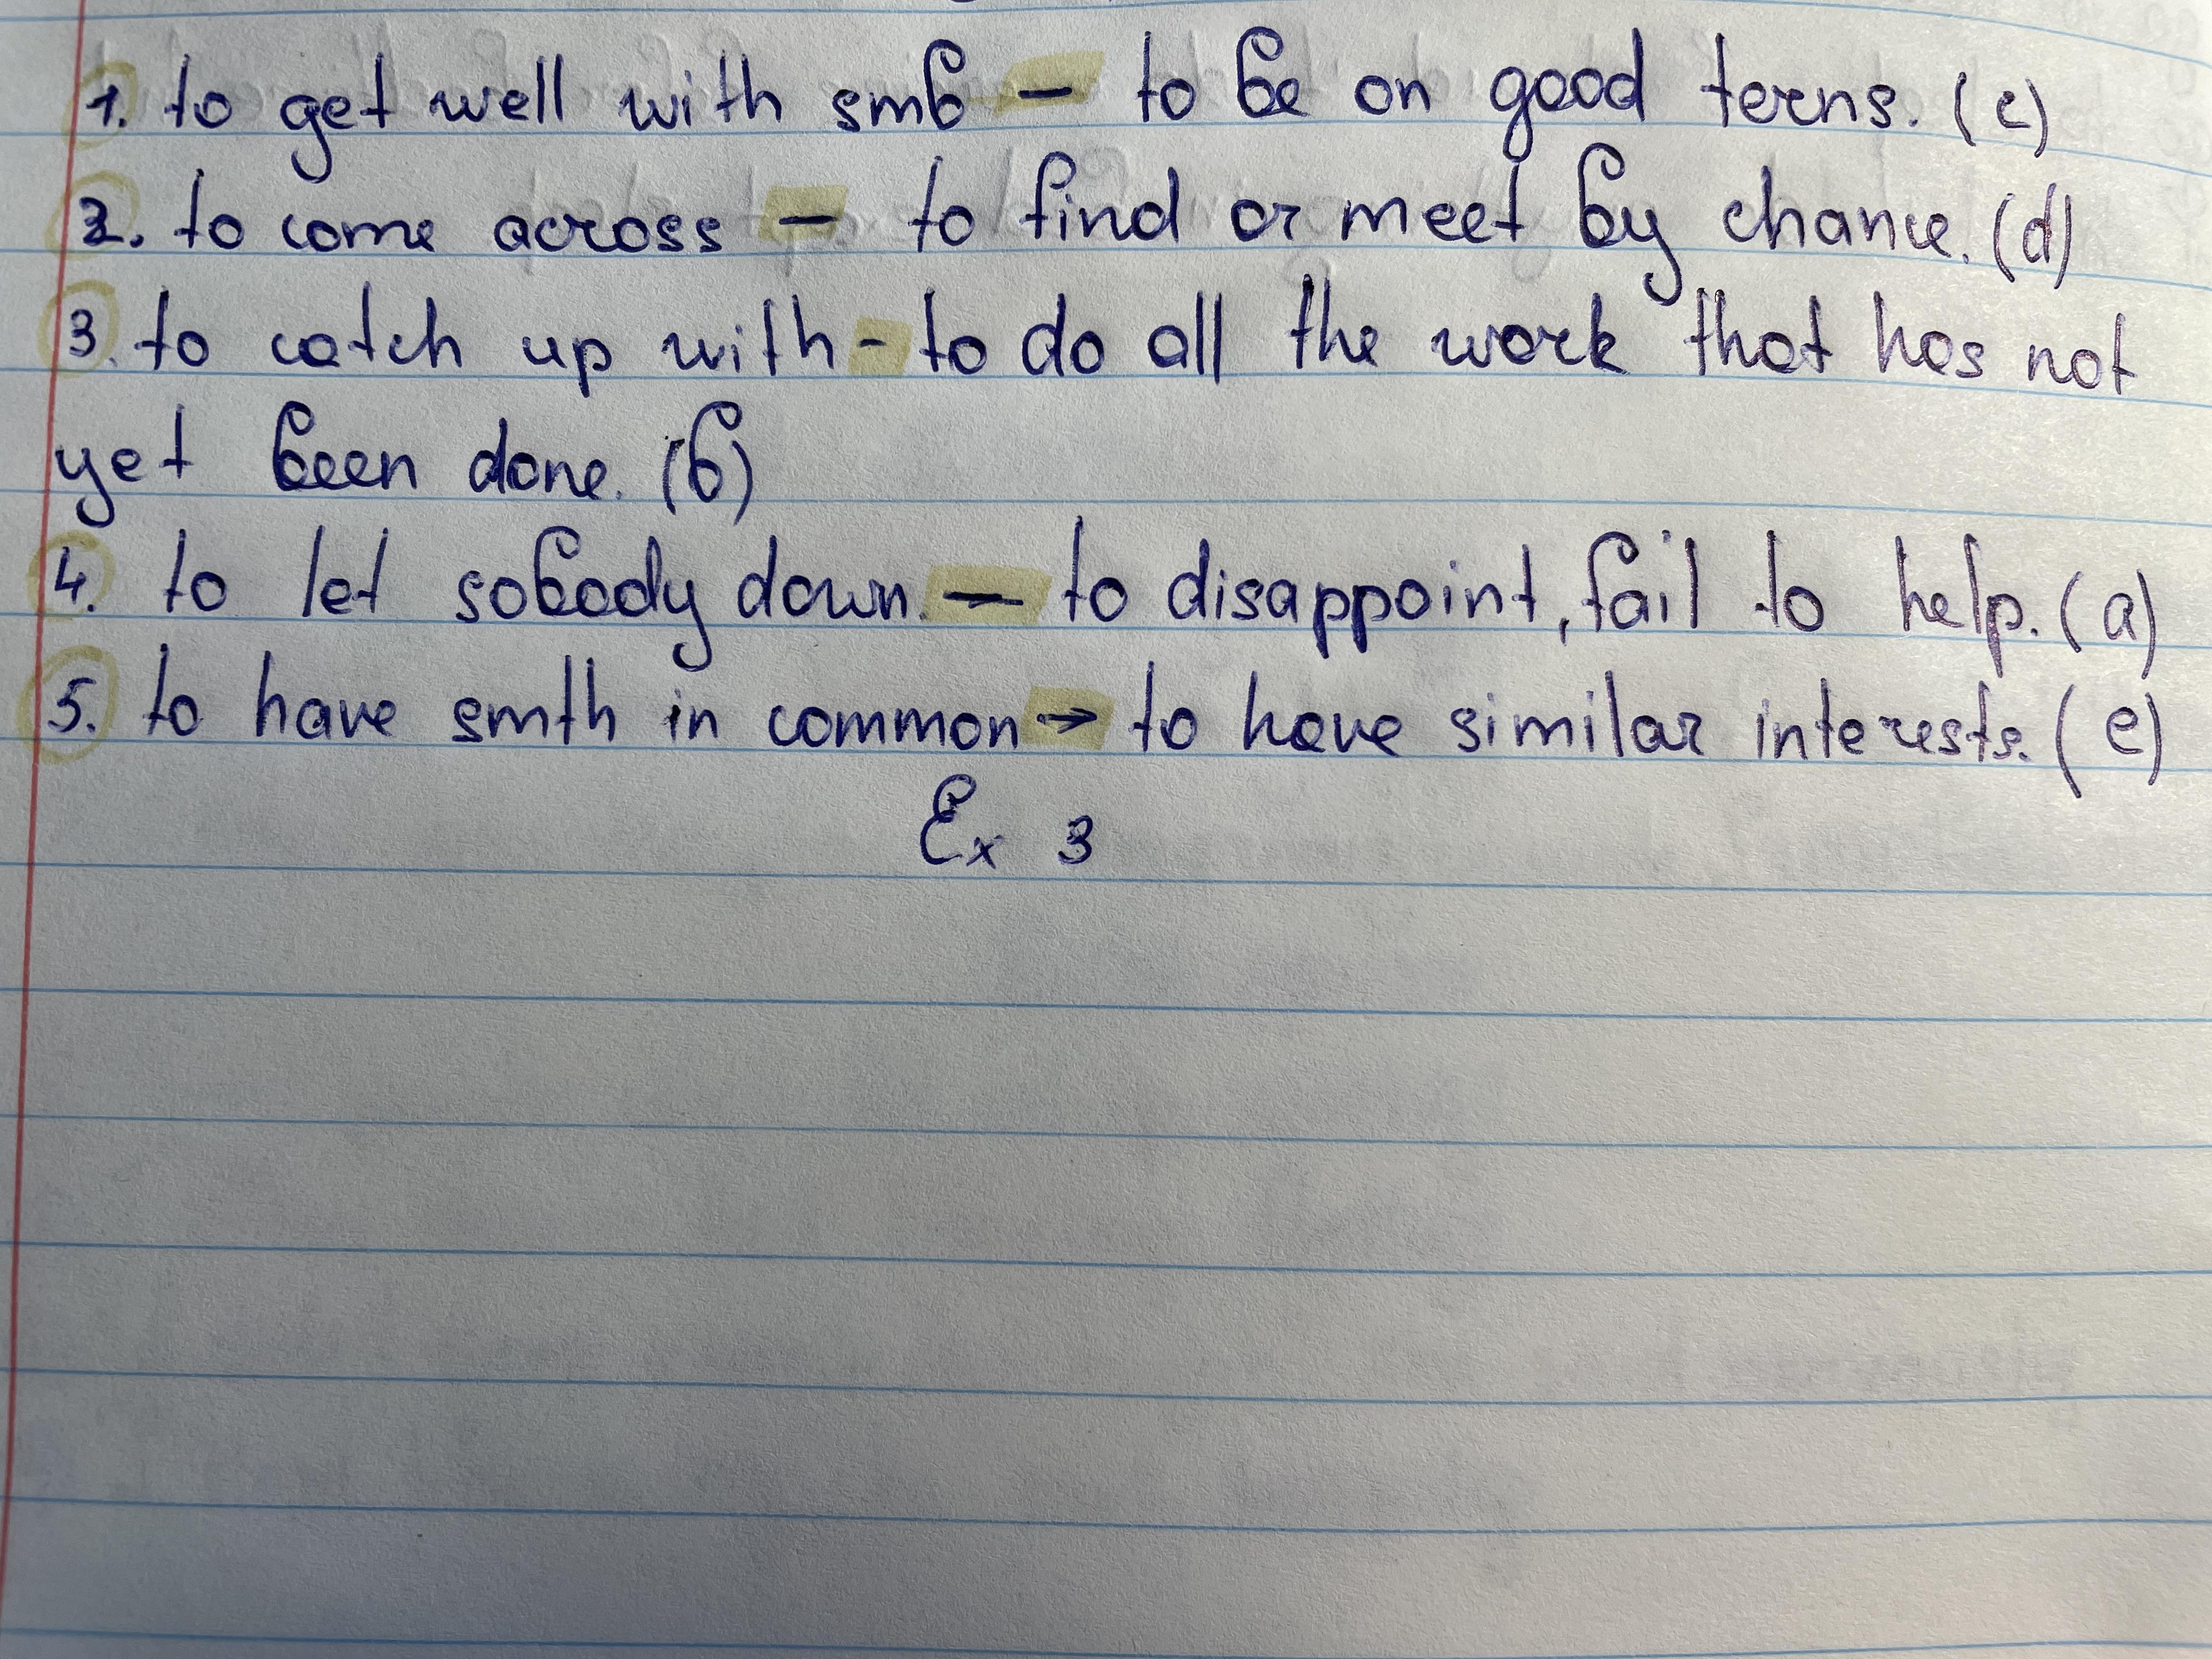 1. to get well with smb – to be on good terns. (c)
2. to come across – to find or meet by chance. (d)
3. to catch up with - to do all the work that has not
yet been done. (b)
4. to let sobody down. – to disappoint, fail to help. (a)
5. to have smth in common → to have similar interests. (e)
Ex 3